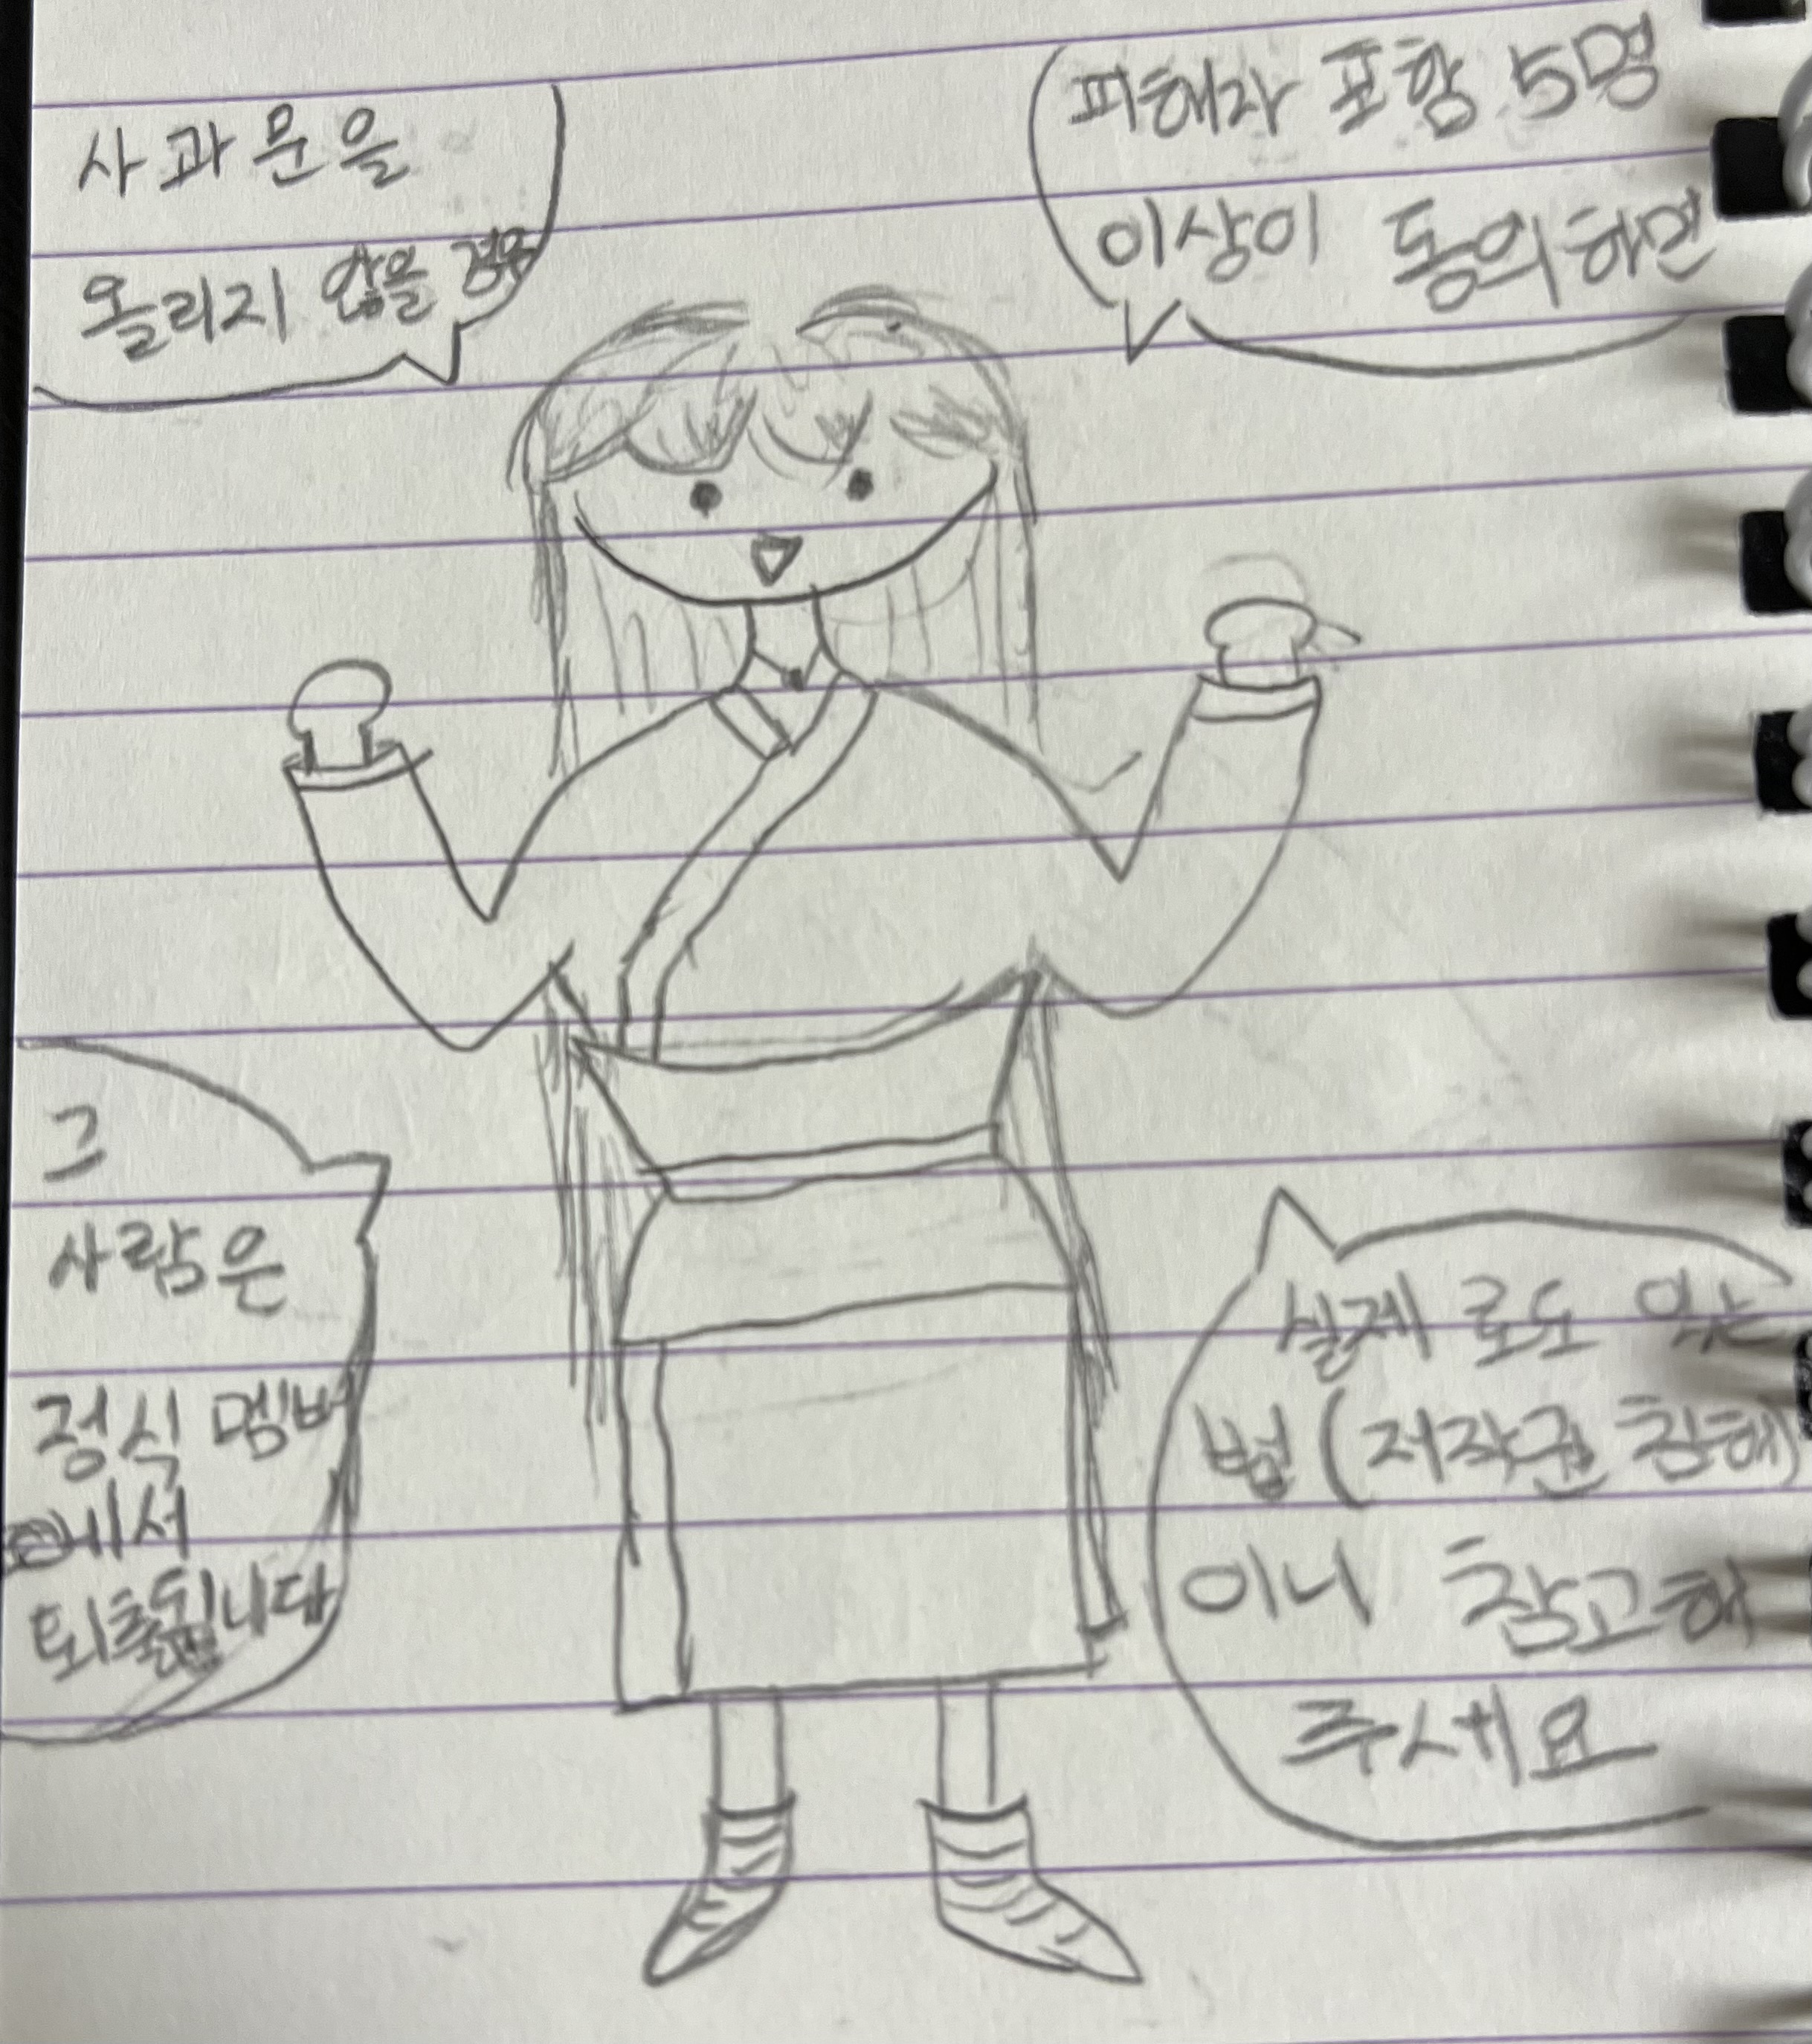 사과문을
올리지 않을 경우
피해자 포함 5명
이상이 동의하면
그
사람은
정식 멤버
에서
퇴출됩니다
실제로도 있는
법 (저작권 침해)
이니 참고해
주세요